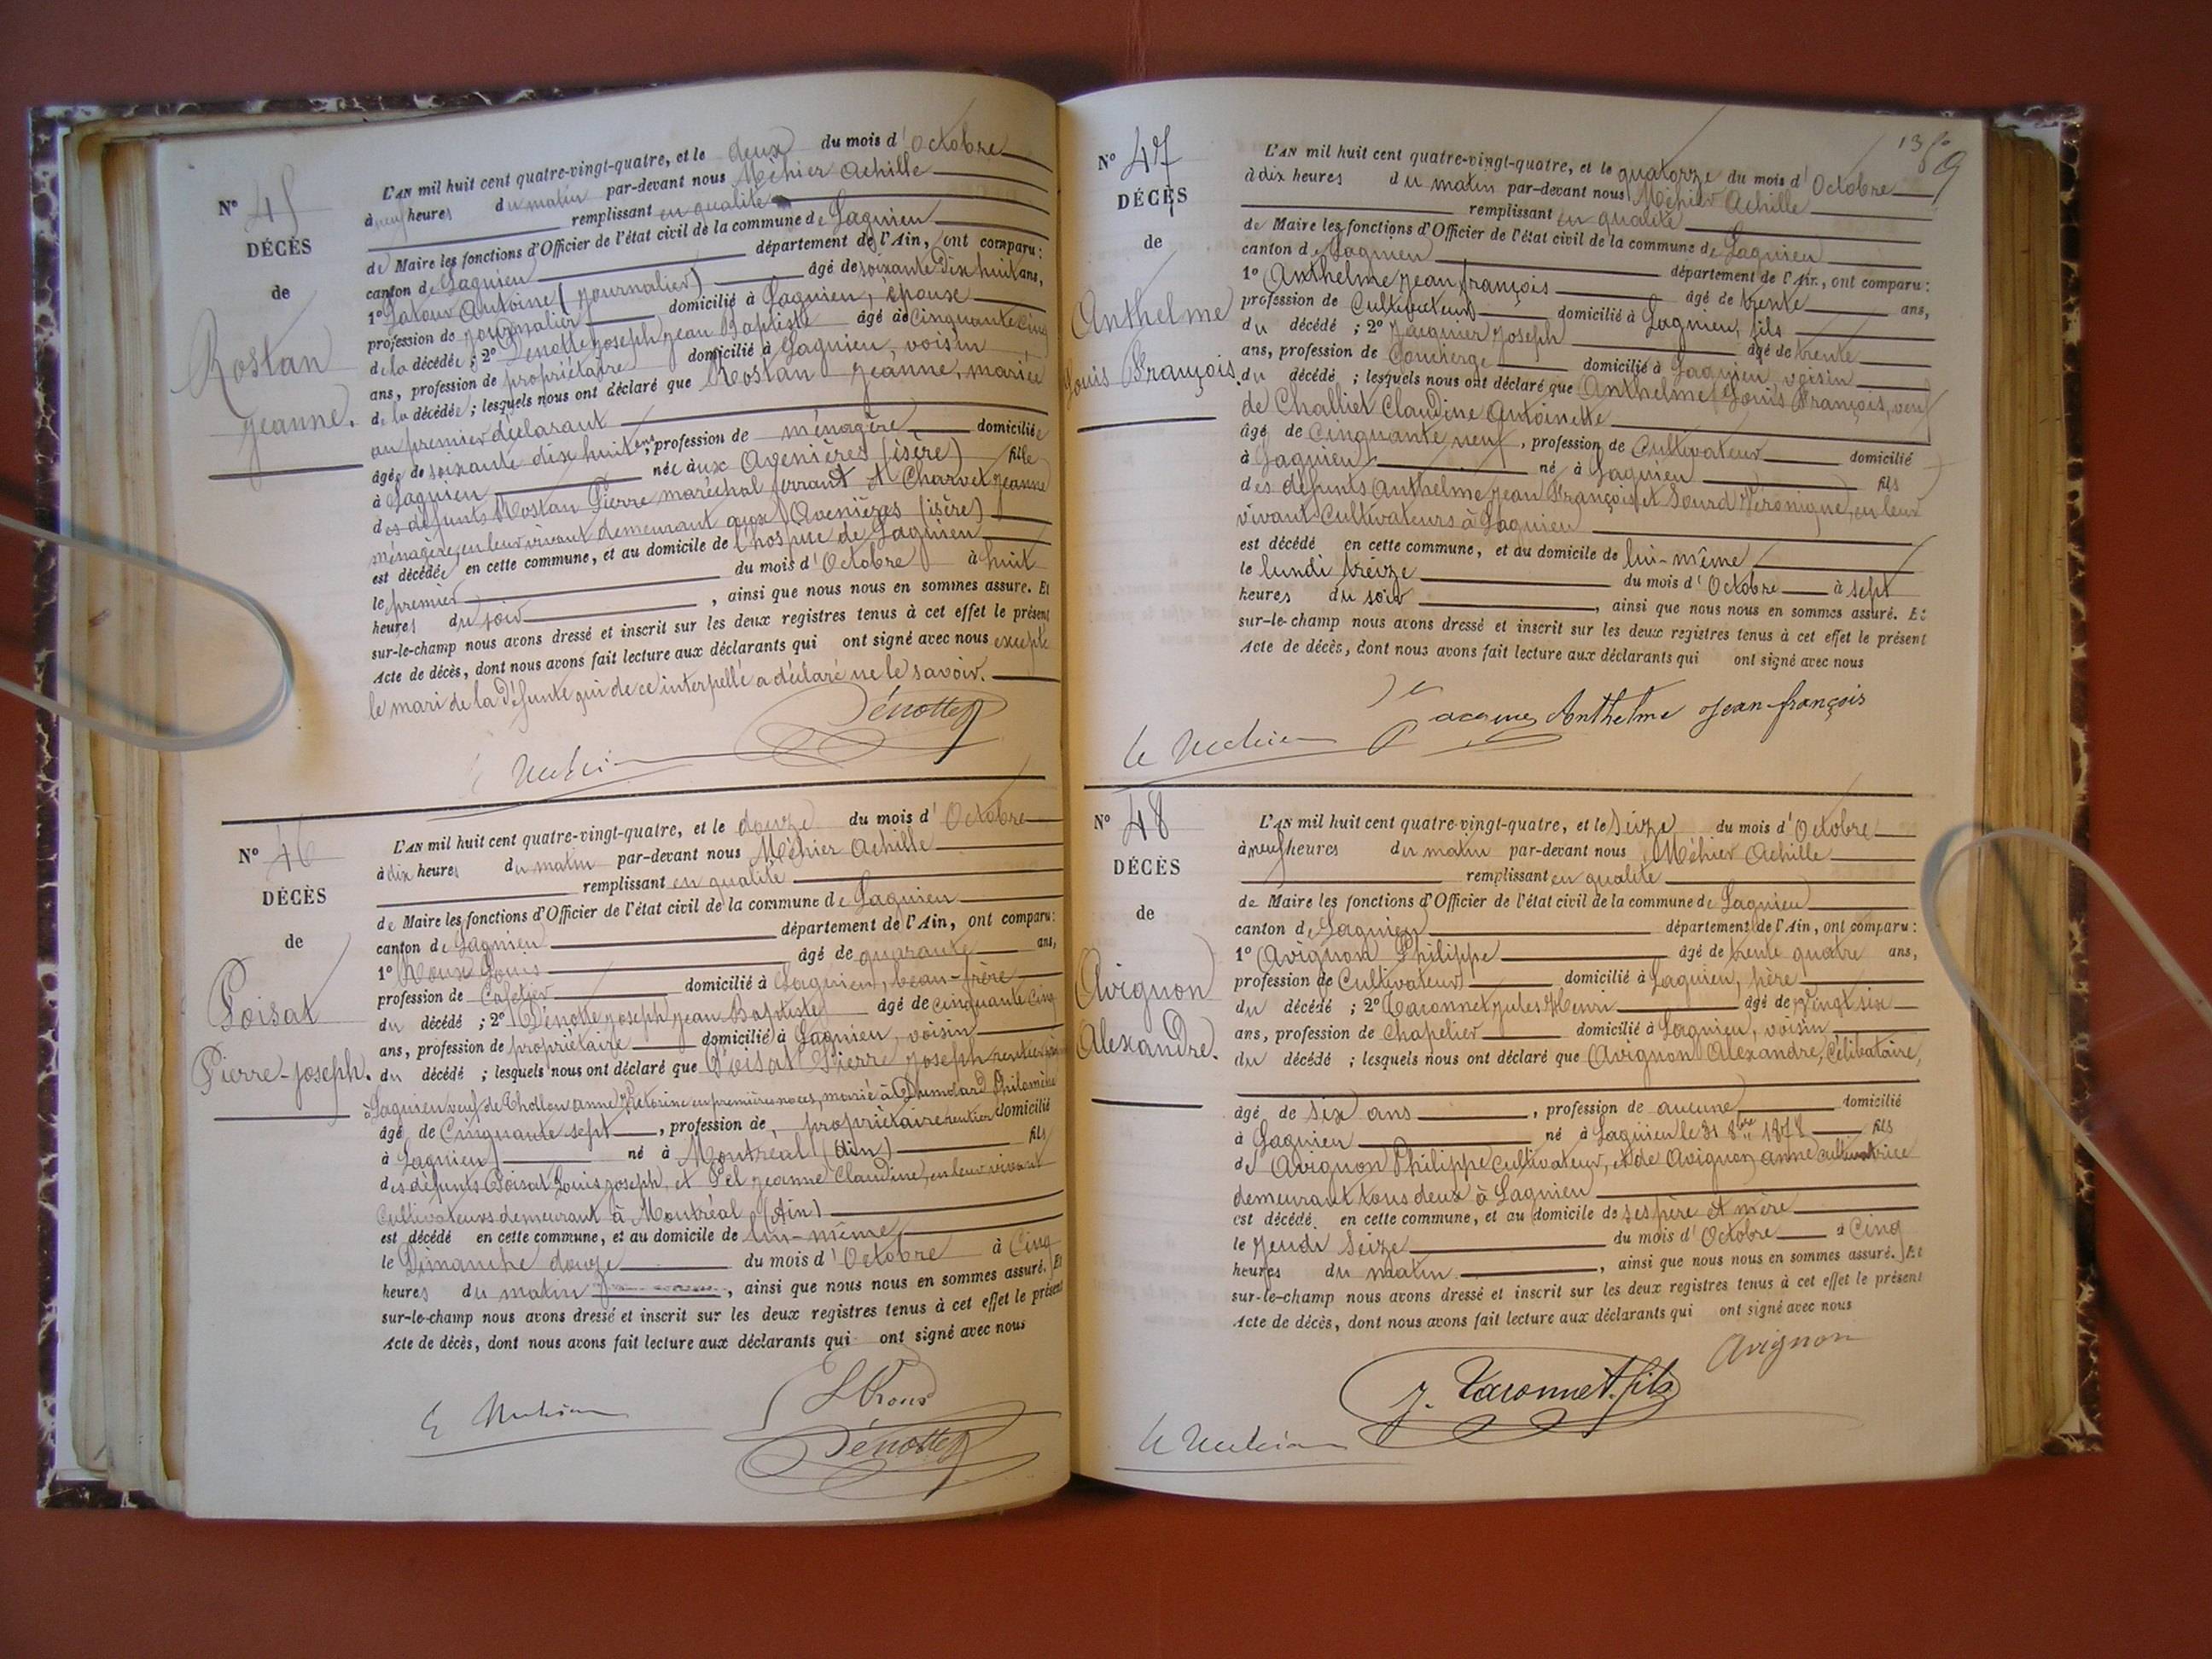 N° 45
DÉCÈS
de
Rostan
Jeanne.
L'AN mil huit cent quatre-vingt-quatre, et le deux du mois d'Octobre
à neuf heures du matin par-devant nous Méhier Achille
remplissant en qualité
de Maire les fonctions d'Officier de l'état civil de la commune de Lagnieu
canton de Lagnieu département de l'Ain, ont comparu:
1° Latour Antoine (journalier) âgé de soixante dix huit ans,
profession de journalier domicilié à Lagnieu, époux
de la décédée; 2° Dénotte Joseph Jean Baptiste âgé de cinquante cinq
ans, profession de propriétaire domicilié à Lagnieu, voisin
de la décédée; lesquels nous ont déclaré que Rostan Jeanne, mariée
au premier déclarant
âgée de soixante dix huit ans, profession de ménagère domiciliée
à Lagnieu née aux Avenières (isère) fille
des défunts Rostan Pierre maréchal ferrant et Charvet Jeanne
ménagère, en leur vivant demeurant aux Avenières (isère)
est décédée en cette commune, et au domicile de l'hospice de Lagnieu
le premier du mois d'Octobre à huit
heures du soir, ainsi que nous nous en sommes assuré. Et
sur-le-champ nous avons dressé et inscrit sur les deux registres tenus à cet effet le présent
Acte de décès, dont nous avons fait lecture aux déclarants qui ont signé avec nous excepté
le mari de la défunte qui de ce interpellé a déclaré ne le savoir.
Dénotte
N° 46
DÉCÈS
de
Poisat
Pierre-Joseph.
L'AN mil huit cent quatre-vingt-quatre, et le douze du mois d'Octobre
à dix heures du matin par-devant nous Méhier Achille
remplissant en qualité
de Maire les fonctions d'Officier de l'état civil de la commune de Lagnieu
canton de Lagnieu département de l'Ain, ont comparu:
1° Roux Louis âgé de quarante ans,
profession de Cafetier domicilié à Lagnieu, beau-frère
du décédé; 2° Dénotte Joseph Jean Baptiste âgé de cinquante cinq
ans, profession de propriétaire domicilié à Lagnieu, voisin
du décédé; lesquels nous ont déclaré que Poisat Pierre Joseph rentier
à Lagnieu veuf de Chollou anne en premières noces, marié à Philomène
âgé de Cinquante sept, profession de propriétaire rentier domicilié
à Lagnieu né à Montréal (Ain) fils
des défunts Poisat Louis Joseph, et Pel Jeanne Claudine, en leur vivant
Cultivateurs demeurant à Montréal (Ain)
est décédé en cette commune, et au domicile de lui-même
le Dimanche douze du mois d'Octobre à Cinq
heures du matin, ainsi que nous nous en sommes assuré. Et
sur-le-champ nous avons dressé et inscrit sur les deux registres tenus à cet effet le présent
Acte de décès, dont nous avons fait lecture aux déclarants qui ont signé avec nous
L Roux
Dénotte
N° 47
DÉCÈS
de
Anthelme
Louis François.
L'AN mil huit cent quatre-vingt-quatre, et le quatorze du mois d'Octobre
à dix heures du matin par-devant nous Méhier Achille
remplissant en qualité
de Maire les fonctions d'Officier de l'état civil de la commune de Lagnieu
canton de Lagnieu département de l'Ain, ont comparu:
1° Anthelme Jean françois âgé de trente ans,
profession de Cultivateur domicilié à Lagnieu, fils
du décédé; 2° Jacquier Joseph âgé de trente
ans, profession de Concierge domicilié à Lagnieu voisin
du décédé; lesquels nous ont déclaré que Anthelme Louis François, veuf
de Challiet Claudine Antoinette
âgé de Cinquante neuf, profession de Cultivateur domicilié
à Lagnieu né à Lagnieu fils
des défunts Anthelme Jean François et Sourd Véronique, en leur
vivant Cultivateurs à Lagnieu
est décédé en cette commune, et au domicile de lui-même
le lundi treize du mois d'Octobre à sept
heures du soir, ainsi que nous nous en sommes assuré. Et
sur-le-champ nous avons dressé et inscrit sur les deux registres tenus à cet effet le présent
Acte de décès, dont nous avons fait lecture aux déclarants qui ont signé avec nous
Anthelme Jean-françois
N° 48
DÉCÈS
de
Avignon
Alexandre.
L'AN mil huit cent quatre-vingt-quatre, et le seize du mois d'Octobre
à neuf heures du matin par-devant nous Méhier Achille
remplissant en qualité
de Maire les fonctions d'Officier de l'état civil de la commune de Lagnieu
canton de Lagnieu département de l'Ain, ont comparu:
1° Avignon Philippe âgé de trente quatre ans,
profession de Cultivateur domicilié à Lagnieu, père
du décédé; 2° Taronnet Jules Henri âgé de vingt six
ans, profession de Chapelier domicilié à Lagnieu, voisin
du décédé; lesquels nous ont déclaré que Avignon Alexandre, Célibataire,
âgé de six ans, profession de aucune domicilié
à Lagnieu né à Lagnieu le 31 8bre 1878 fils
de Avignon Philippe cultivateur, et de Avignon anne cultivatrice
demeurant tous deux à Lagnieu
est décédé en cette commune, et au domicile de ses père et mère
le jeudi seize du mois d'Octobre à Cinq
heures du matin, ainsi que nous nous en sommes assuré. Et
sur-le-champ nous avons dressé et inscrit sur les deux registres tenus à cet effet le présent
Acte de décès, dont nous avons fait lecture aux déclarants qui ont signé avec nous
Avignon
J. Taronnet fils